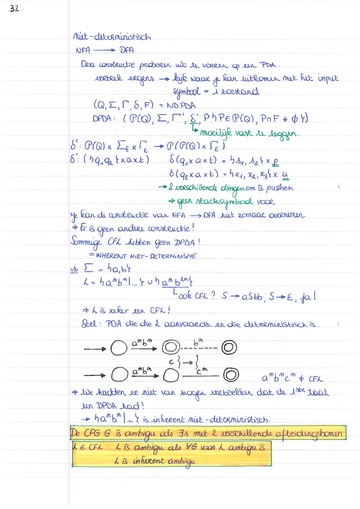 32.
niet-deterministisch
NFA → DFA
Deze constructie proberen uit te voeren op een PDA.
vertrek ergens → kijk waar je kan uitkomen met het input
symbool = 1 toestand
(Q, Σ, Γ, δ, F) = ND PDA
DPDA: (P(Q), Σ, Γ', δ', P∩F ≠ ∅})
↳ moeilijk vast te leggen.
δ': P(Q) × Σε × Γε → P(P(Q) × Γε)
→ 2 verschillende dingen om te pushen
→ geen stacksymbool voor
je kan de constructie van NFA → DFA niet zomaar overnemen
→ Er is geen andere constructie!
Sommige CFL hebben geen DPDA!
= INHERENT NIET-DETERMINISME
vb Σ = {a,b}
L = {aⁿbⁿ|...} ∪ {aⁿb²ⁿ}
↳ ook CFL? S → aSbb, S → ε, ja!
→ L is zeker een CFL!
Stel: PDA die die L aanvaardt en die deterministisch is.
aⁿbⁿ bⁿ
c
aⁿbⁿ cⁿ aⁿbⁿcⁿ ∉ CFL
→ We hadden er niet van mogen vertrekken dat de 1ste taal
een DPDA had!
→ {aⁿbⁿ|...} is inherent niet-deterministisch.
De CFG G is ambigu als ∃s met 2 verschillende afleidingsbomen.
L ∈ CFL L is ambigu als ∀G voor L ambigu is
L is inherent ambigu.